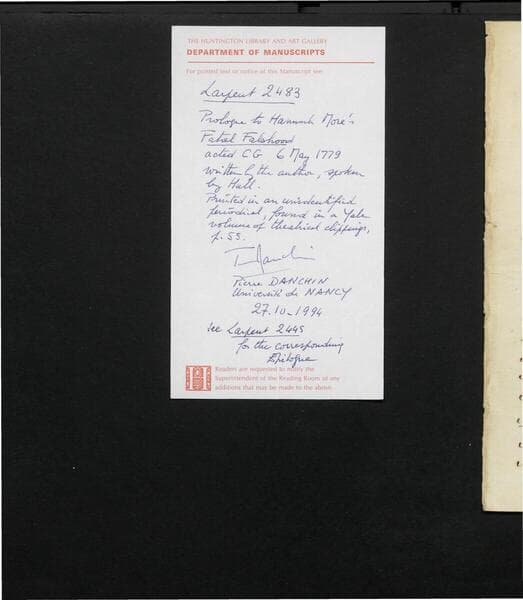 THE HUNTINGTON LIBRARY AND ART GALLERY
DEPARTMENT OF MANUSCRIPTS
For printed text or notice of this Manuscript see:
Larpent 2483
Prologue to Hannah More's
Fatal Falshood
acted CG 6 May 1779
written by the author, spoken
by Hull.
Printed in an unidentified
periodical, found in a Yale
volume of theatrical clippings,
p. 53.
Pierre DANCHIN
Université de NANCY
27.10.1994
see Larpent 2449
for the corresponding
Epilogue
Readers are requested to notify the
Superintendent of the Reading Room of any
additions that may be made to the above.